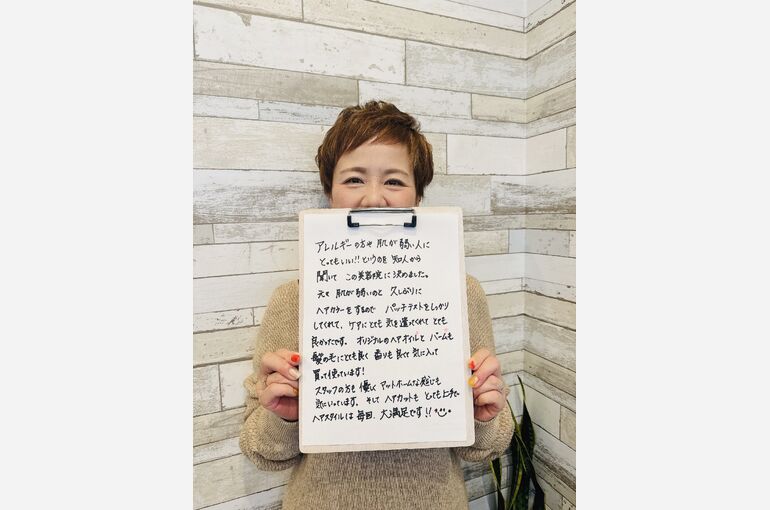 アレルギーの方や 肌が弱い人に
とってもいい!!というのを 知人から
聞いて この美容院に決めました。
元々 肌が弱いのと 久しぶりに
ヘアカラーをするので パッチテストをしっかり
してくれて、ケアにとても 気を遣ってくれて とても
良かったです。 オリジナルのヘアオイルと バームも
髪の毛にとても良く 香りも良くて 気に入って
買って使っています!
スタッフの方も 優しく アットホームな感じも
気にいっています。そして ヘアカットも とっても上手で
ヘアスタイルは 毎回 大満足です!!